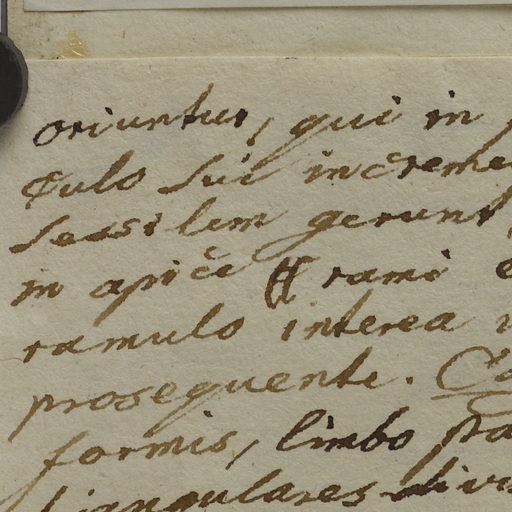 oriuntur, qui in
culo sui increme
sessilem gerunt
in apice rami
ramulo interea
prosequente. Ca
formis, limbo
iangulares divi